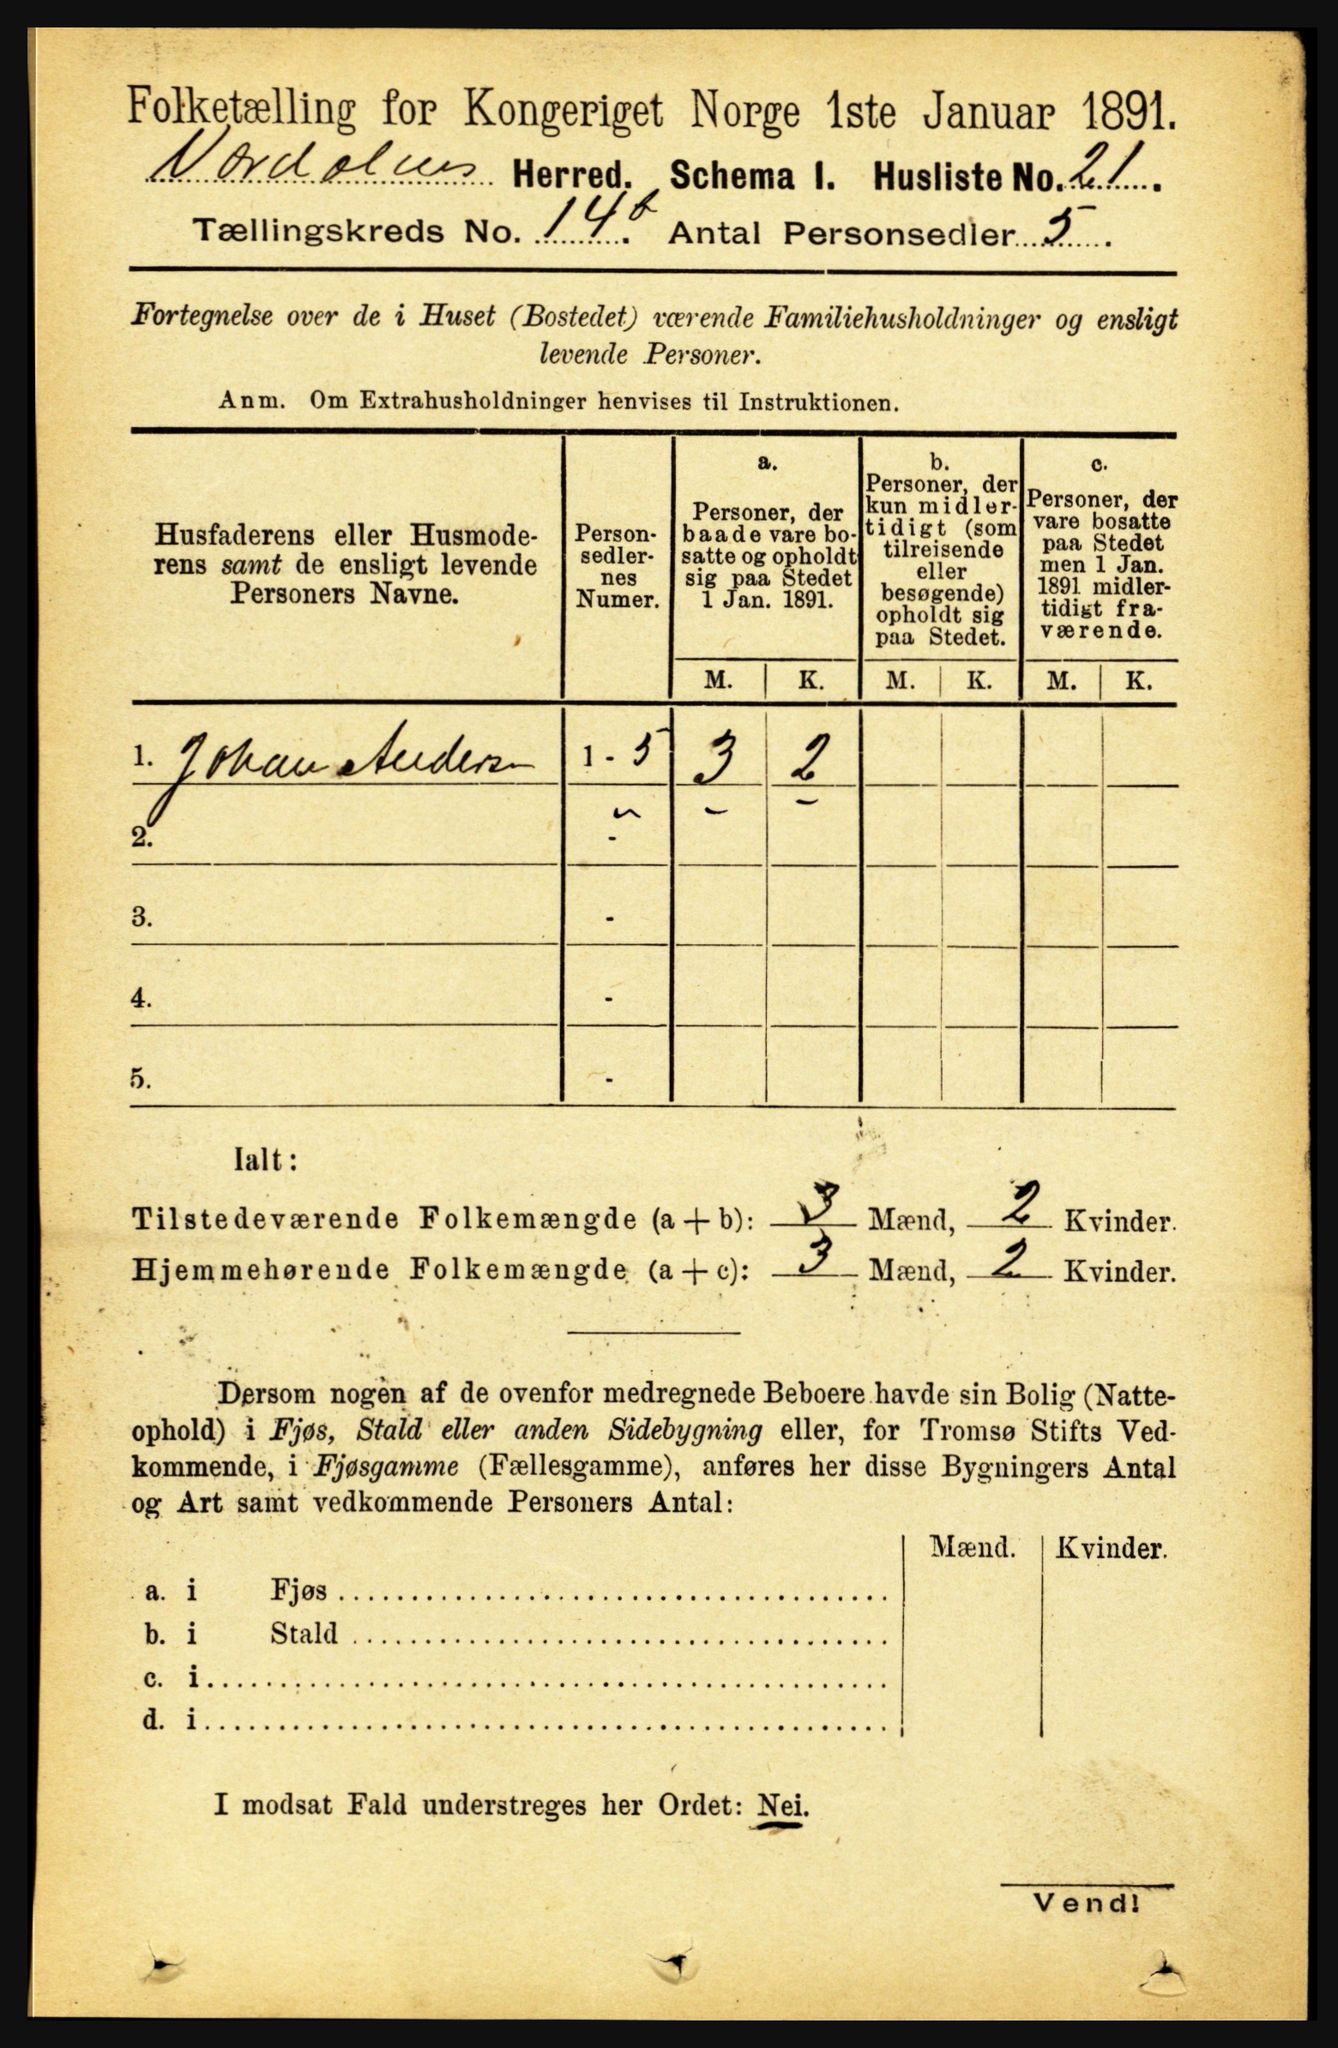 Folketælling for Kongeriget Norge 1ste Januar 1891.
Herred. Schema I. Husliste No. 21.
Tællingskreds No. 14b. Antal Personsedler 5.
Fortegnelse over de i Huset (Bostedet) værende Familiehusholdninger og ensligt
levende Personer.
Anm. Om Extrahusholdninger henvises til Instruktionen.
Husfaderens eller Husmode-
rens samt de ensligt levende
Personers Navne.
Person-
sedler-
nes
Numer.
a.
Personer, der
baade vare bo-
satte og opholdt
sig paa Stedet
1 Jan. 1891.
b.
Personer, der
kun midler-
tidigt (som
tilreisende
eller
besøgende)
opholdt sig
paa Stedet.
c.
Personer, der
vare bosatte
paa Stedet
men 1 Jan.
1891 midler-
tidigt fra-
værende.
M. K. M. K. M. K.
1. Johan Andersn 1 - 5 3 2
2. -
3. -
4. -
5. -
Ialt:
Tilstedeværende Folkemængde (a + b): 3 Mænd, 2 Kvinder.
Hjemmehørende Folkemængde (a + c): 3 Mænd, 2 Kvinder.
Dersom nogen af de ovenfor medregnede Beboere havde sin Bolig (Natte-
ophold) i Fjøs, Stald eller anden Sidebygning eller, for Tromsø Stifts Ved-
kommende, i Fjøsgamme (Fællesgamme), anføres her disse Bygningers Antal
og Art samt vedkommende Personers Antal:
Mænd. Kvinder.
a. i Fjøs
b. i Stald
c. i
d. i
I modsat Fald understreges her Ordet: Nei.
Vend!